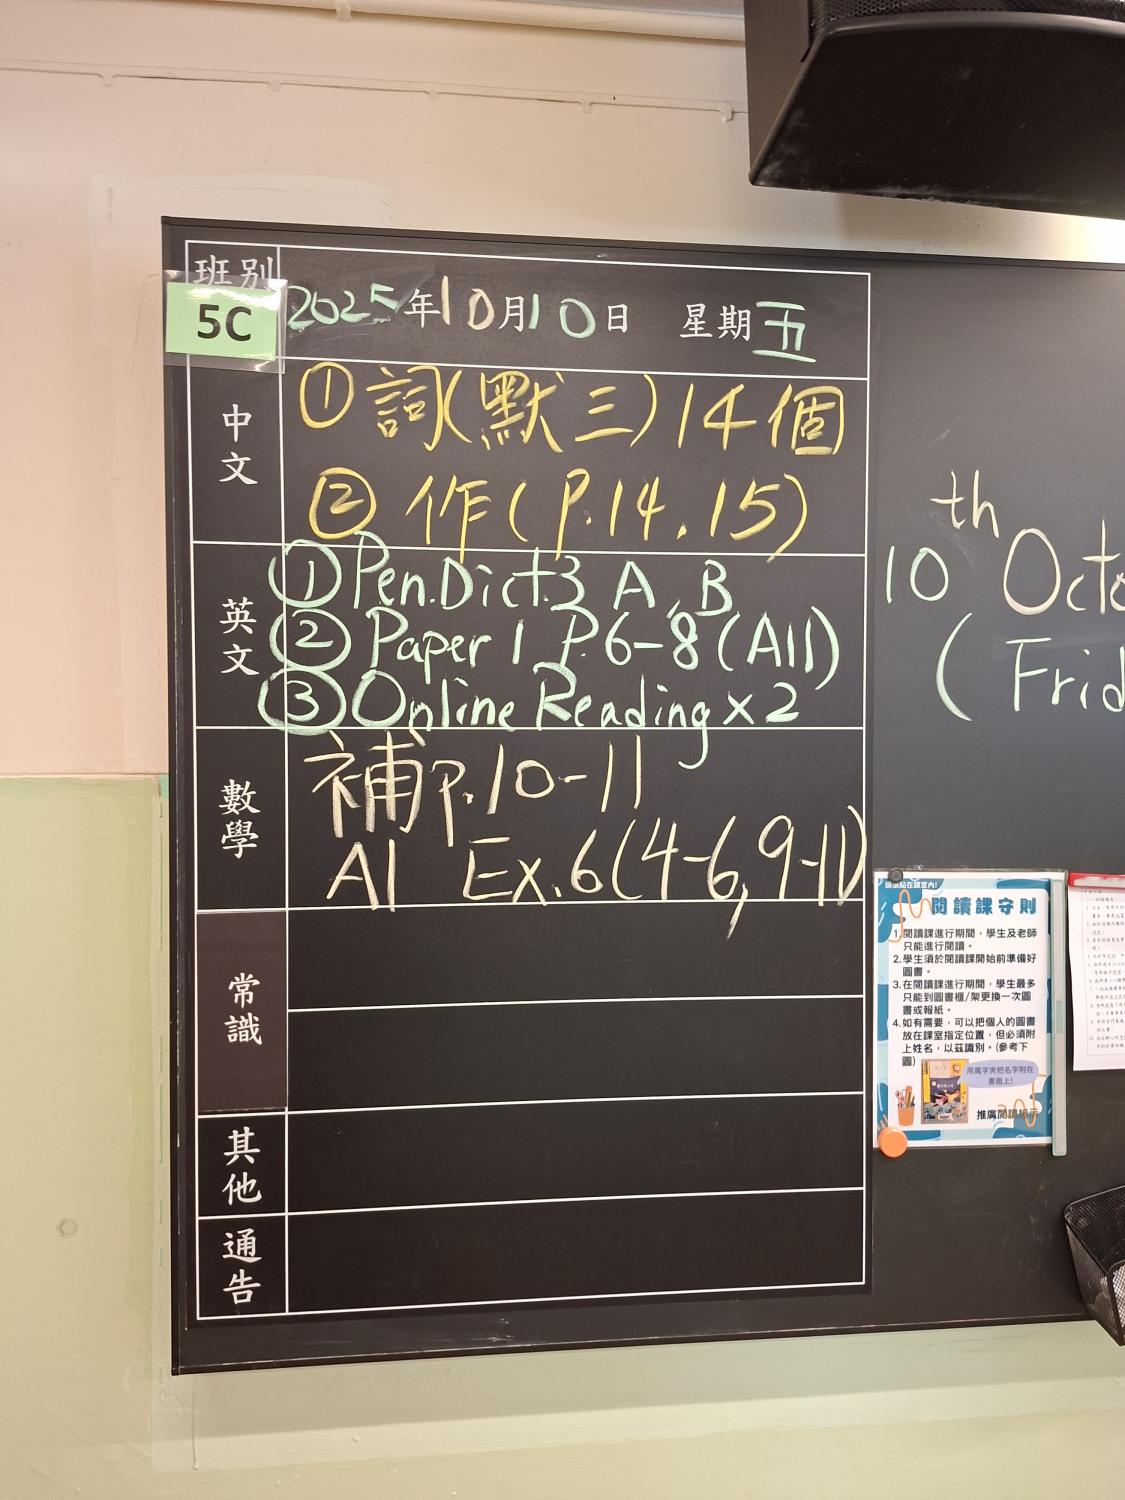 班別
5C
2025年10月10日 星期五
中文
①詞(默三)14個
②作(P.14,15)
英文
①Pen.Dict.3 A,B
②Paper 1 P.6-8(All)
③Online Reading x2
數學
補P.10-11
A1 Ex.6(4-6,9-11)
常識
其他
通告
10th Octo
(Frid
請張貼在課室內!
閱讀課守則
1.閱讀課進行期間，學生及老師
只能進行閱讀。
2.學生須於閱讀課開始前準備好
圖書。
3.在閱讀課進行期間，學生最多
只能到圖書櫃/架更換一次圖
書或報紙。
4.如有需要，可以把個人的圖書
放在課室指定位置，但必須附
上姓名，以茲識別。(參考下
圖)
用萬字夾把名字附在
書面上!
推廣閱讀組示